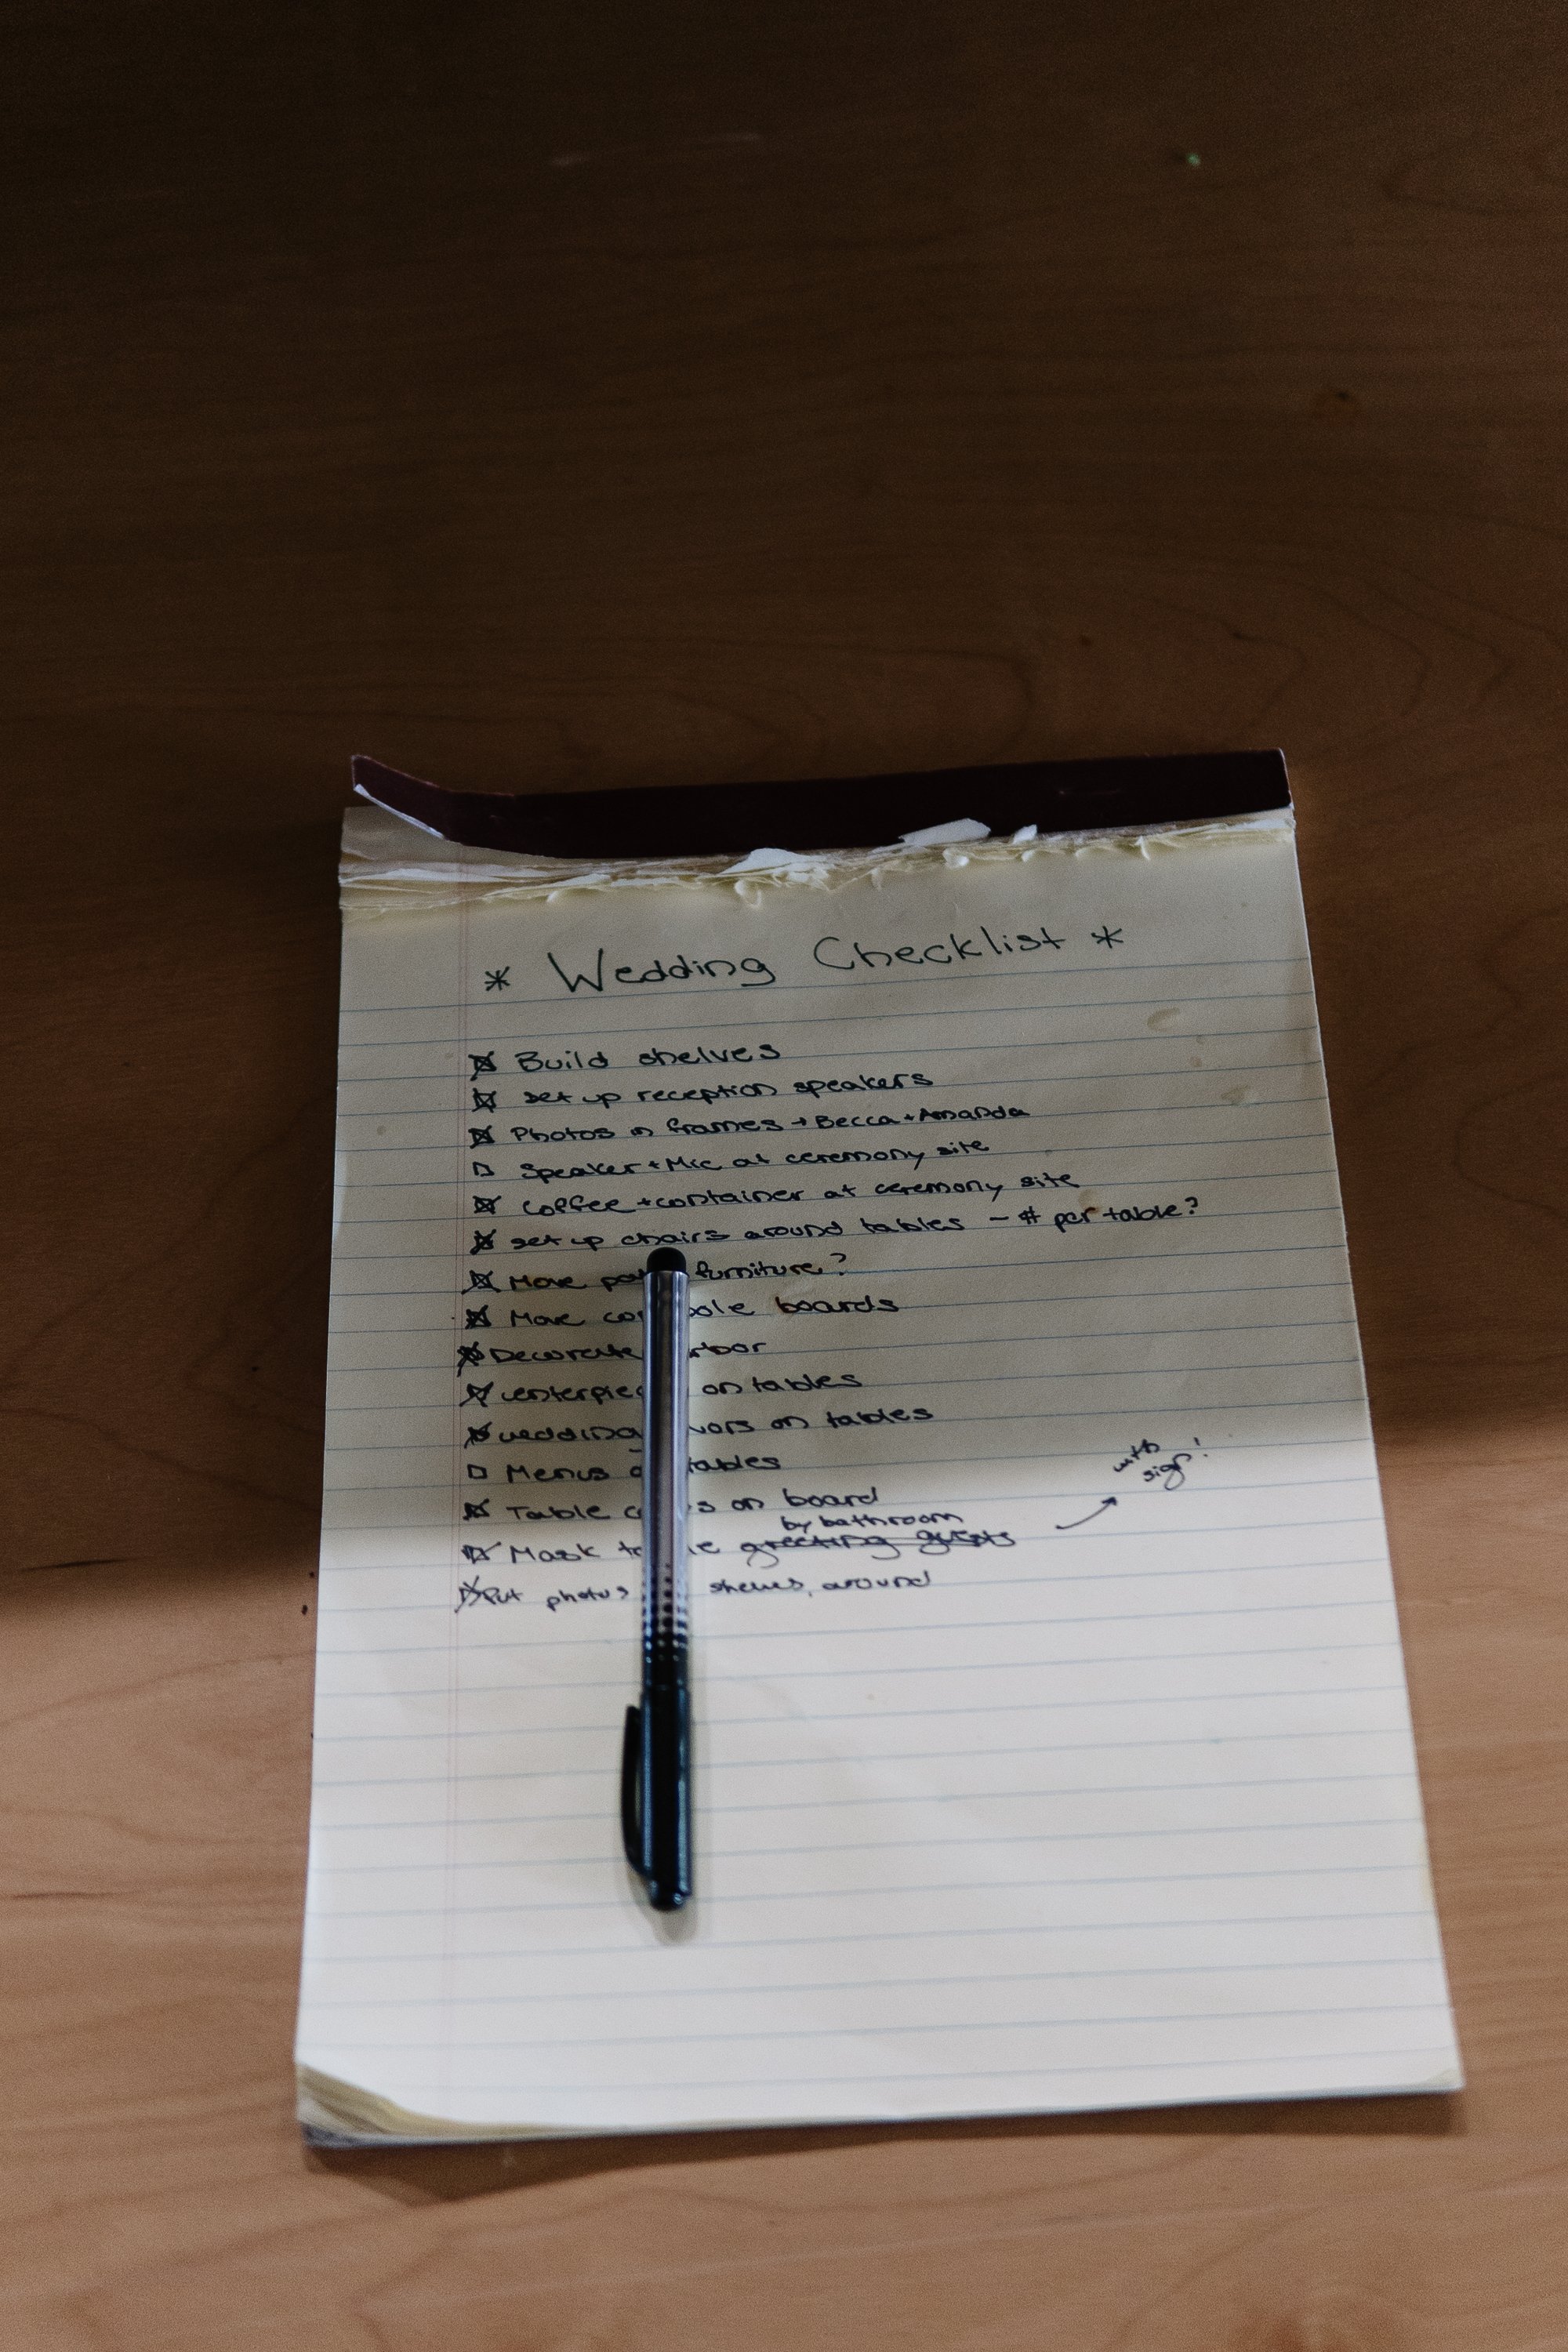 * Wedding Checklist *
Build shelves
set up reception speakers
Photos in frames → Becca + Amanda
Speaker + Mic at ceremony site
Coffee + container at ceremony site
set up chairs around tables - # per table?
Move furniture?
Move boards
Decorate
on tables
wedding on tables
Menus tables
Table on board
by bathroom
Mask greeting guests
with
sign!
Put photos shelves, around